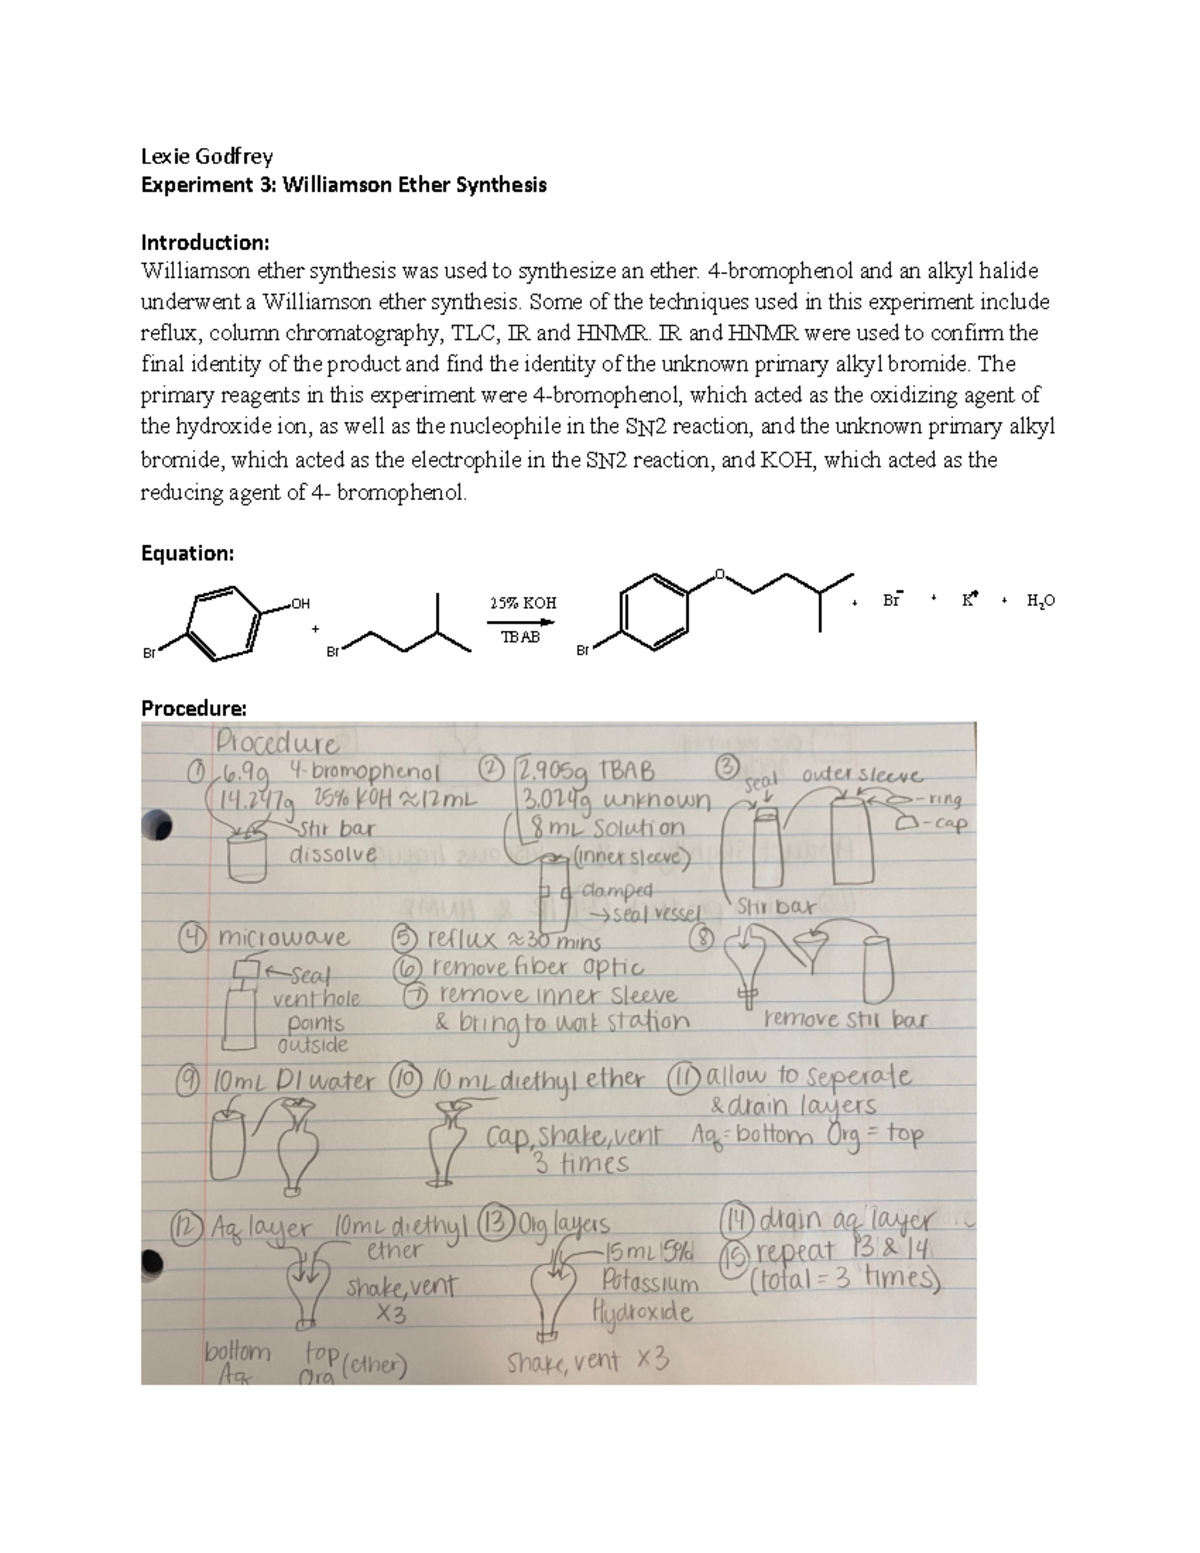 Lexie Godfrey
Experiment 3: Williamson Ether Synthesis
Introduction:
Williamson ether synthesis was used to synthesize an ether. 4-bromophenol and an alkyl halide
underwent a Williamson ether synthesis. Some of the techniques used in this experiment include
reflux, column chromatography, TLC, IR and HNMR. IR and HNMR were used to confirm the
final identity of the product and find the identity of the unknown primary alkyl bromide. The
primary reagents in this experiment were 4-bromophenol, which acted as the oxidizing agent of
the hydroxide ion, as well as the nucleophile in the SN2 reaction, and the unknown primary alkyl
bromide, which acted as the electrophile in the SN2 reaction, and KOH, which acted as the
reducing agent of 4- bromophenol.
Equation:
Br OH + Br 25% KOH TBAB Br O + Br⁻ + K⁺ + H₂O
Procedure:
Procedure
① 6.9g 4-bromophenol
14.247g 25% KOH ≈12mL
stir bar
dissolve
② 2.905g TBAB
3.024g unknown
8mL solution
(inner sleeve)
clamped
→seal vessel
③ seal outer sleeve
-ring
-cap
stir bar
④ microwave
←seal
vent hole
points
outside
⑤ reflux ≈30 mins
⑥ remove fiber optic
⑦ remove inner sleeve
& bring to work station
⑧
remove stir bar
⑨ 10mL DI water
⑩ 10 mL diethyl ether
Cap, shake, vent
3 times
⑪ allow to seperate
& drain layers
Aq=bottom Org = top
⑫ Aq layer 10mL diethyl
ether
shake, vent
X3
bottom top (ether)
Aq Org
⑬ Org layers
15mL 5%
Potassium
Hydroxide
shake, vent x3
⑭ drain aq layer
⑮ repeat 13 & 14
(total = 3 times)